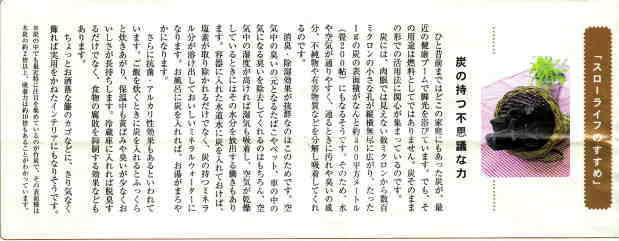 「スローライフのすすめ」
炭の持つ不思議な力
ひと昔前まではどこの家庭にもあった炭が、最
近の健康ブームで脚光を浴びています。でも、そ
の用途は燃料としてではありません。炭そのまま
の形での活用法に関心が集まっているのです。
炭には、肉眼では見えない数ミクロンから数百
ミクロンの小さな孔が縦横無尽に広がり、たった
1gの炭の表面積がなんと約400平方メートル
(畳200帖)にもなるそうです。そのため、水
や空気が通りやすく、通るときに汚れや臭いの成
分、不純物や有害物質などを分解し吸着してくれ
るのです。
消臭・除湿効果が抜群なのはこのためです。空
気中の臭いの元となるたばこやペット、車の中の
気になる臭いを除去してくれるのはもちろん、空
気中の湿度が高ければ湿気も吸着し、空気が乾燥
しているときにはその水分を放出する働きもあり
ます。容器に入れた水道水に炭を入れておけば、
塩素が取り除かれるだけでなく、炭の持つミネラ
ル分が溶け出しておいしいミネラルウォーターに
なります。お風呂に炭を入れれば、お湯がまろや
かになります。
さらに抗菌・アルカリ性効果もあるといわれて
います。ご飯を炊くときに炭を入れるとふっくら
と炊きあがり、保温中も黄ばみや臭いが少なくお
いしさが長持ちします。冷蔵庫に入れれば脱臭す
るだけでなく、食物の腐敗を抑制する効果なども
あります。
ちょっとお洒落な籐のカゴなどに、さり気なく
飾れば実用をかねたインテリアにもなりそうです。
※炭の中でも最近特に注目を集めているのが竹炭で、その表面積は
木炭の約2倍以上、吸着力は約10倍もあることがわかっています。